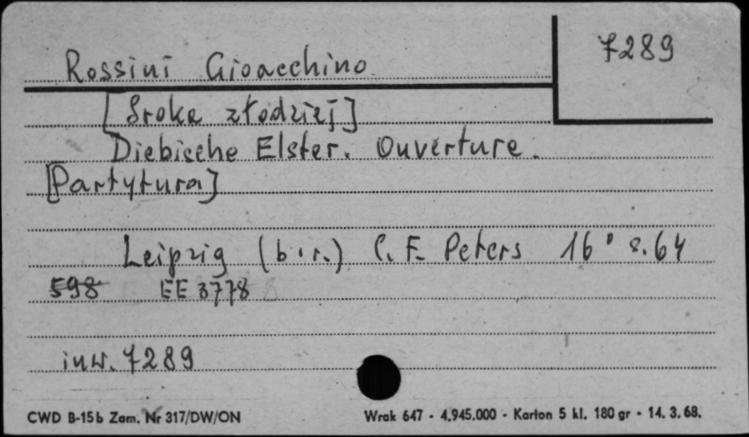 Rossini Gioacchino
7289
[Sroka złodziej]
Diebische Elster. Ouverture.
[Partytura]
Leipzig (b.r.) C. F. Peters 16° s. 64
598 EE 3778
inw. 7289
CWD B-15b Zam. Nr 317/DW/ON Wrak 647 - 4.945.000 - Karton 5 kl. 180 gr - 14. 3. 68.